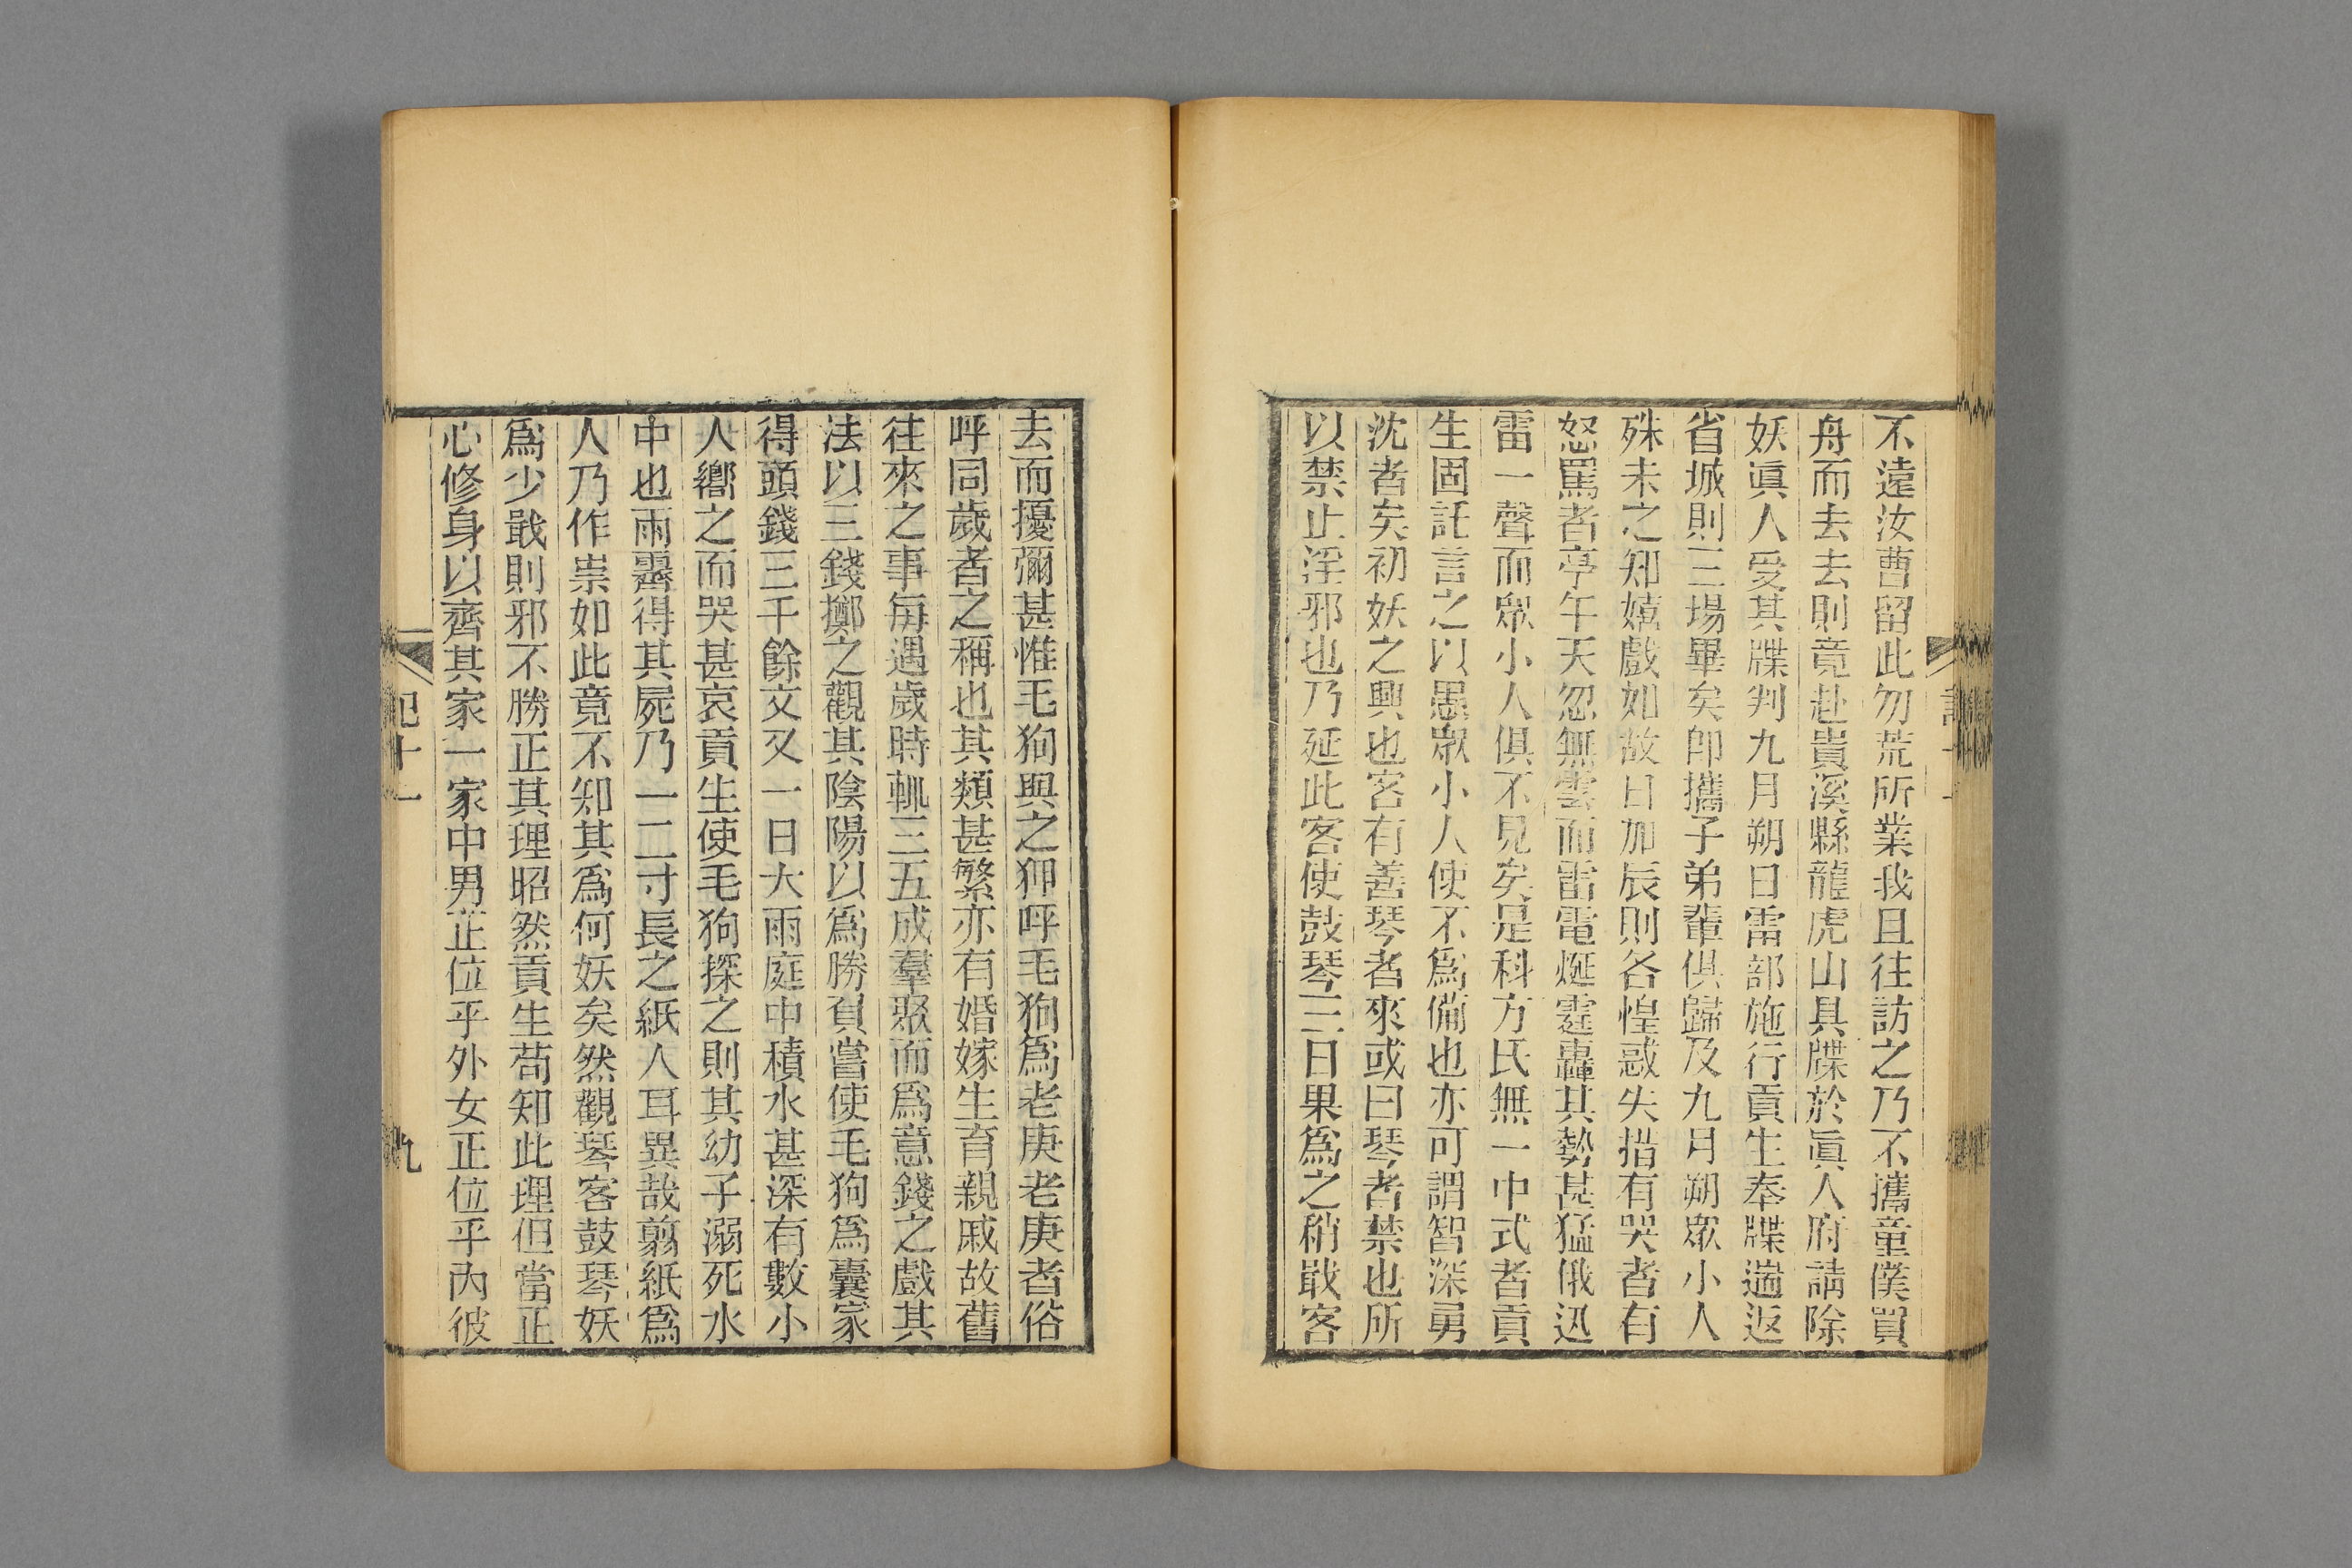 不遠汝曹留此勿荒所業我且往訪之乃不攜童僕買
舟而去去則竟赴貴溪縣龍虎山具牒於眞人府請除
妖眞人受其牒判九月朔日雷部施行貢生奉牒遄返
省城則三場畢矣卽攜子弟輩俱歸及九月朔眾小人
殊未之知嬉戲如故日加辰則各惶惑失措有哭者有
怒罵者亭午天忽無雲而雷電烻霆轟其勢甚猛俄迅
雷一聲而眾小人俱不見矣是科方氏無一中式者貢
生固託言之以愚眾小人使不爲備也亦可謂智深勇
沈者矣初妖之興也客有善琴者來或曰琴者禁也所
以禁止淫邪也乃延此客使鼓琴三日果爲之稍戢客
去而擾彌甚惟毛狗與之狎呼毛狗爲老庚老庚者俗
呼同歲者之稱也其類甚繁亦有婚嫁生育親戚故舊
往來之事每遇歲時輒三五成羣聚而爲意錢之戲其
法以三錢擲之觀其陰陽以爲勝負嘗使毛狗爲囊家
得頭錢三千餘文又一日大雨庭中積水甚深有數小
人嚮之而哭甚哀貢生使毛狗探之則其幼子溺死水
中也雨霽得其屍乃一二寸長之紙人耳異哉翦紙爲
人乃作祟如此竟不知其爲何妖矣然觀琴客鼓琴妖
爲少戢則邪不勝正其理昭然貢生苟知此理但當正
心修身以齊其家一家中男正位乎外女正位乎內彼
記十一
九